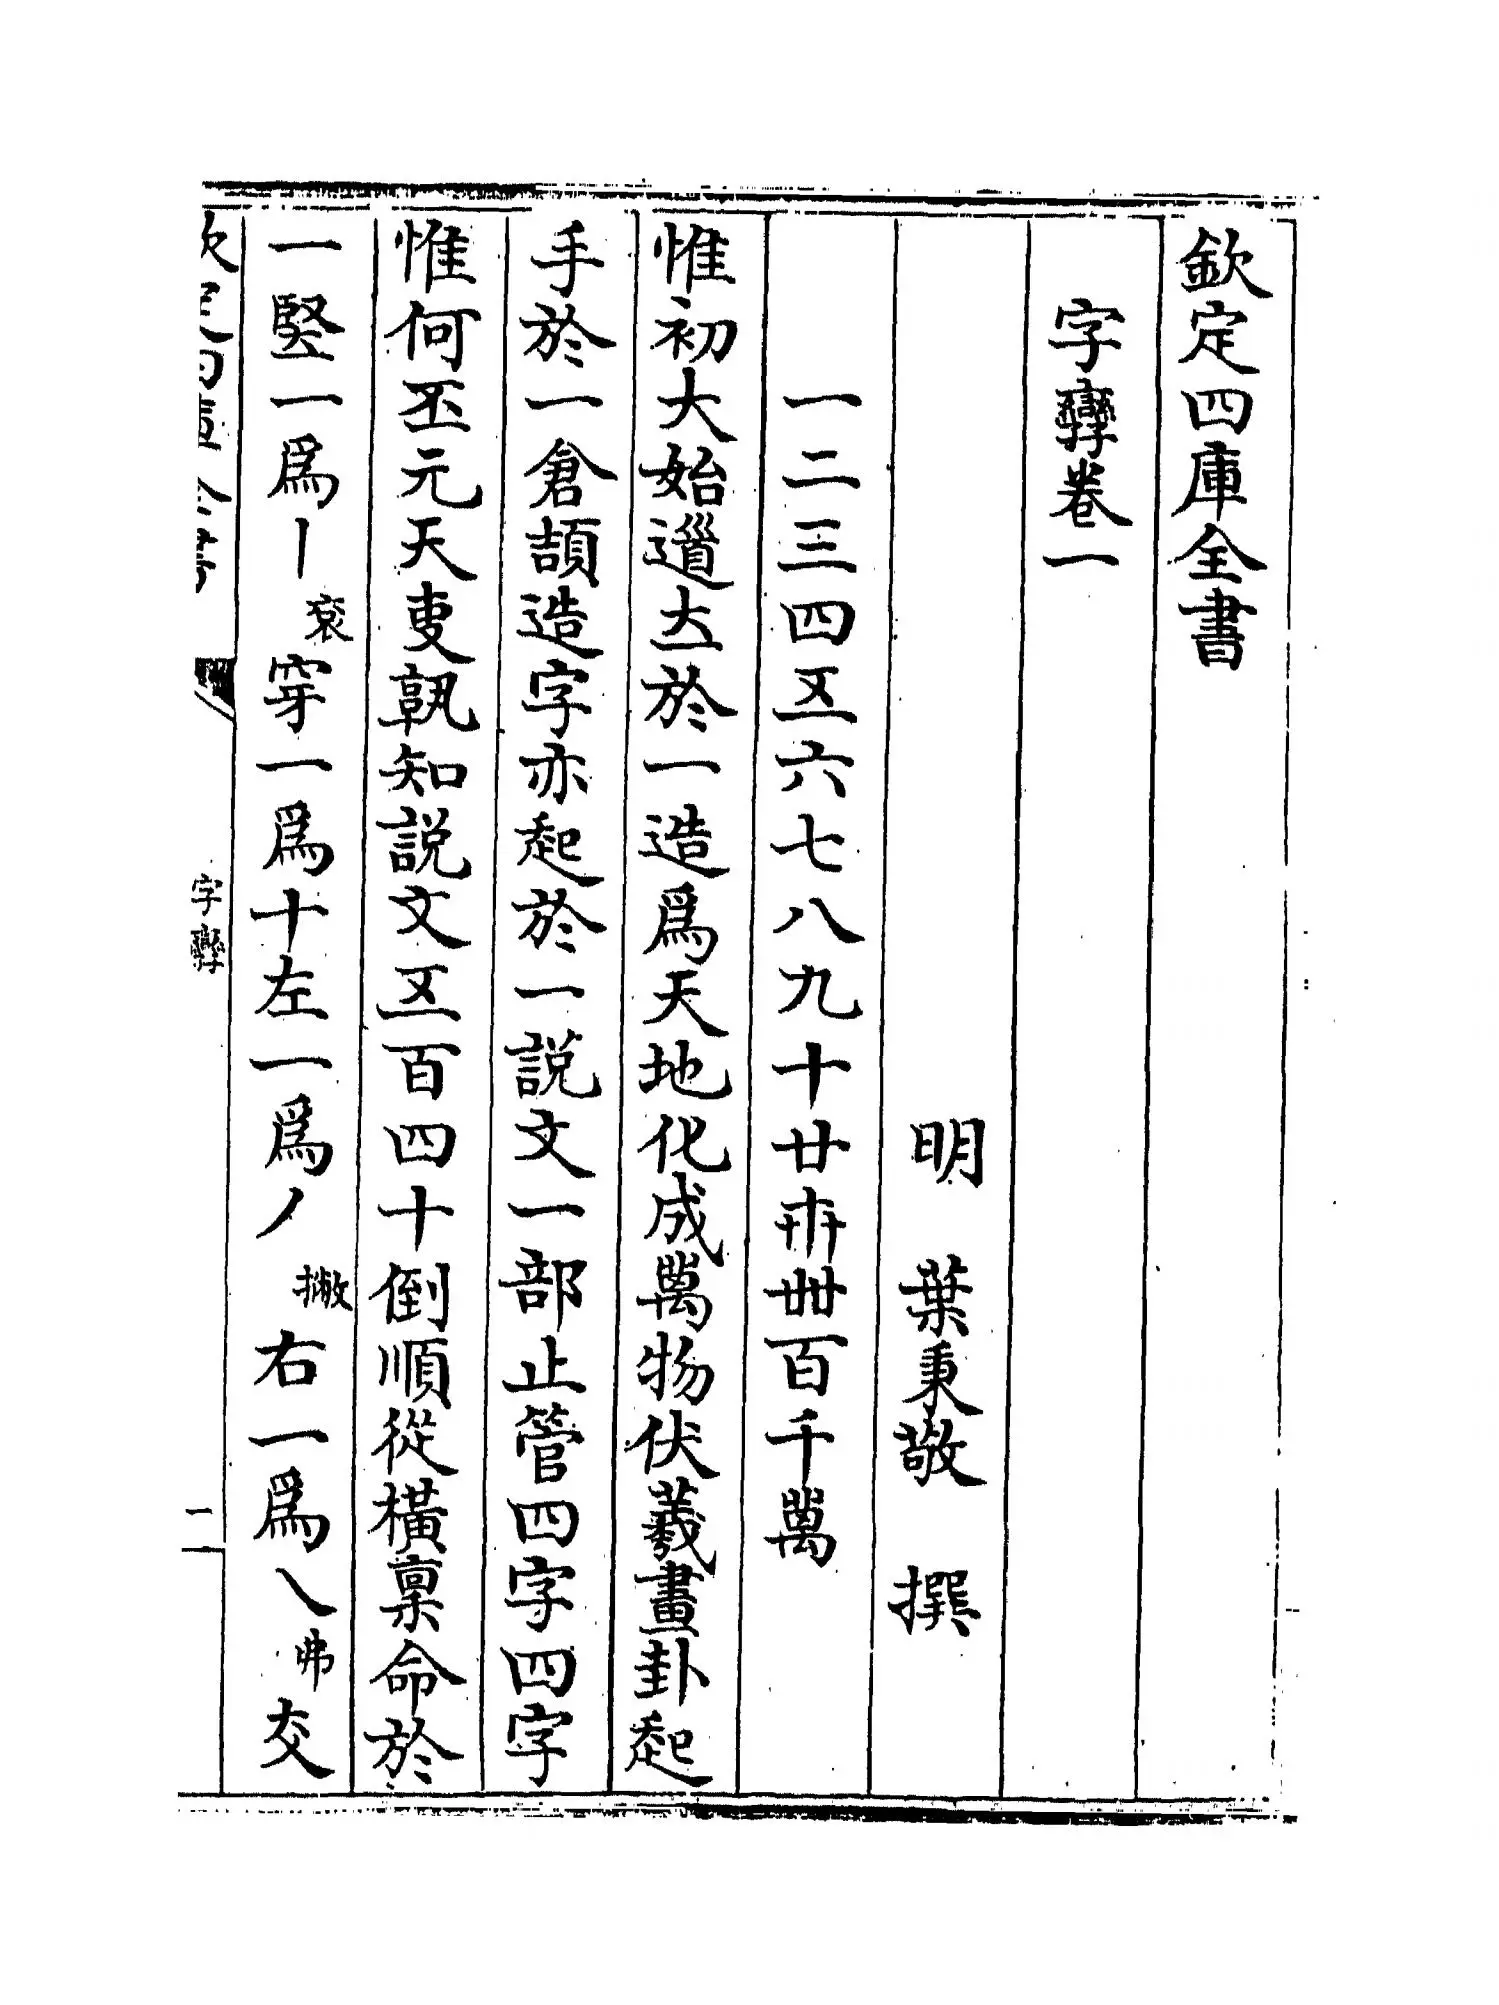 欽定四庫全書
字孿卷一
明 葉秉敬 撰
一二三四五六七八九十廿卅卌百千萬
惟初大始道立於一造爲天地化成萬物伏羲畫卦起
手於一倉頡造字亦起於一説文一部止管四字四字
惟何丕元天吏孰知説文五百四十倒順從横稟命於
一竪一爲丨衮穿一爲十左一爲丿撇右一爲乀弗交
欽定四庫全書 字孿 一